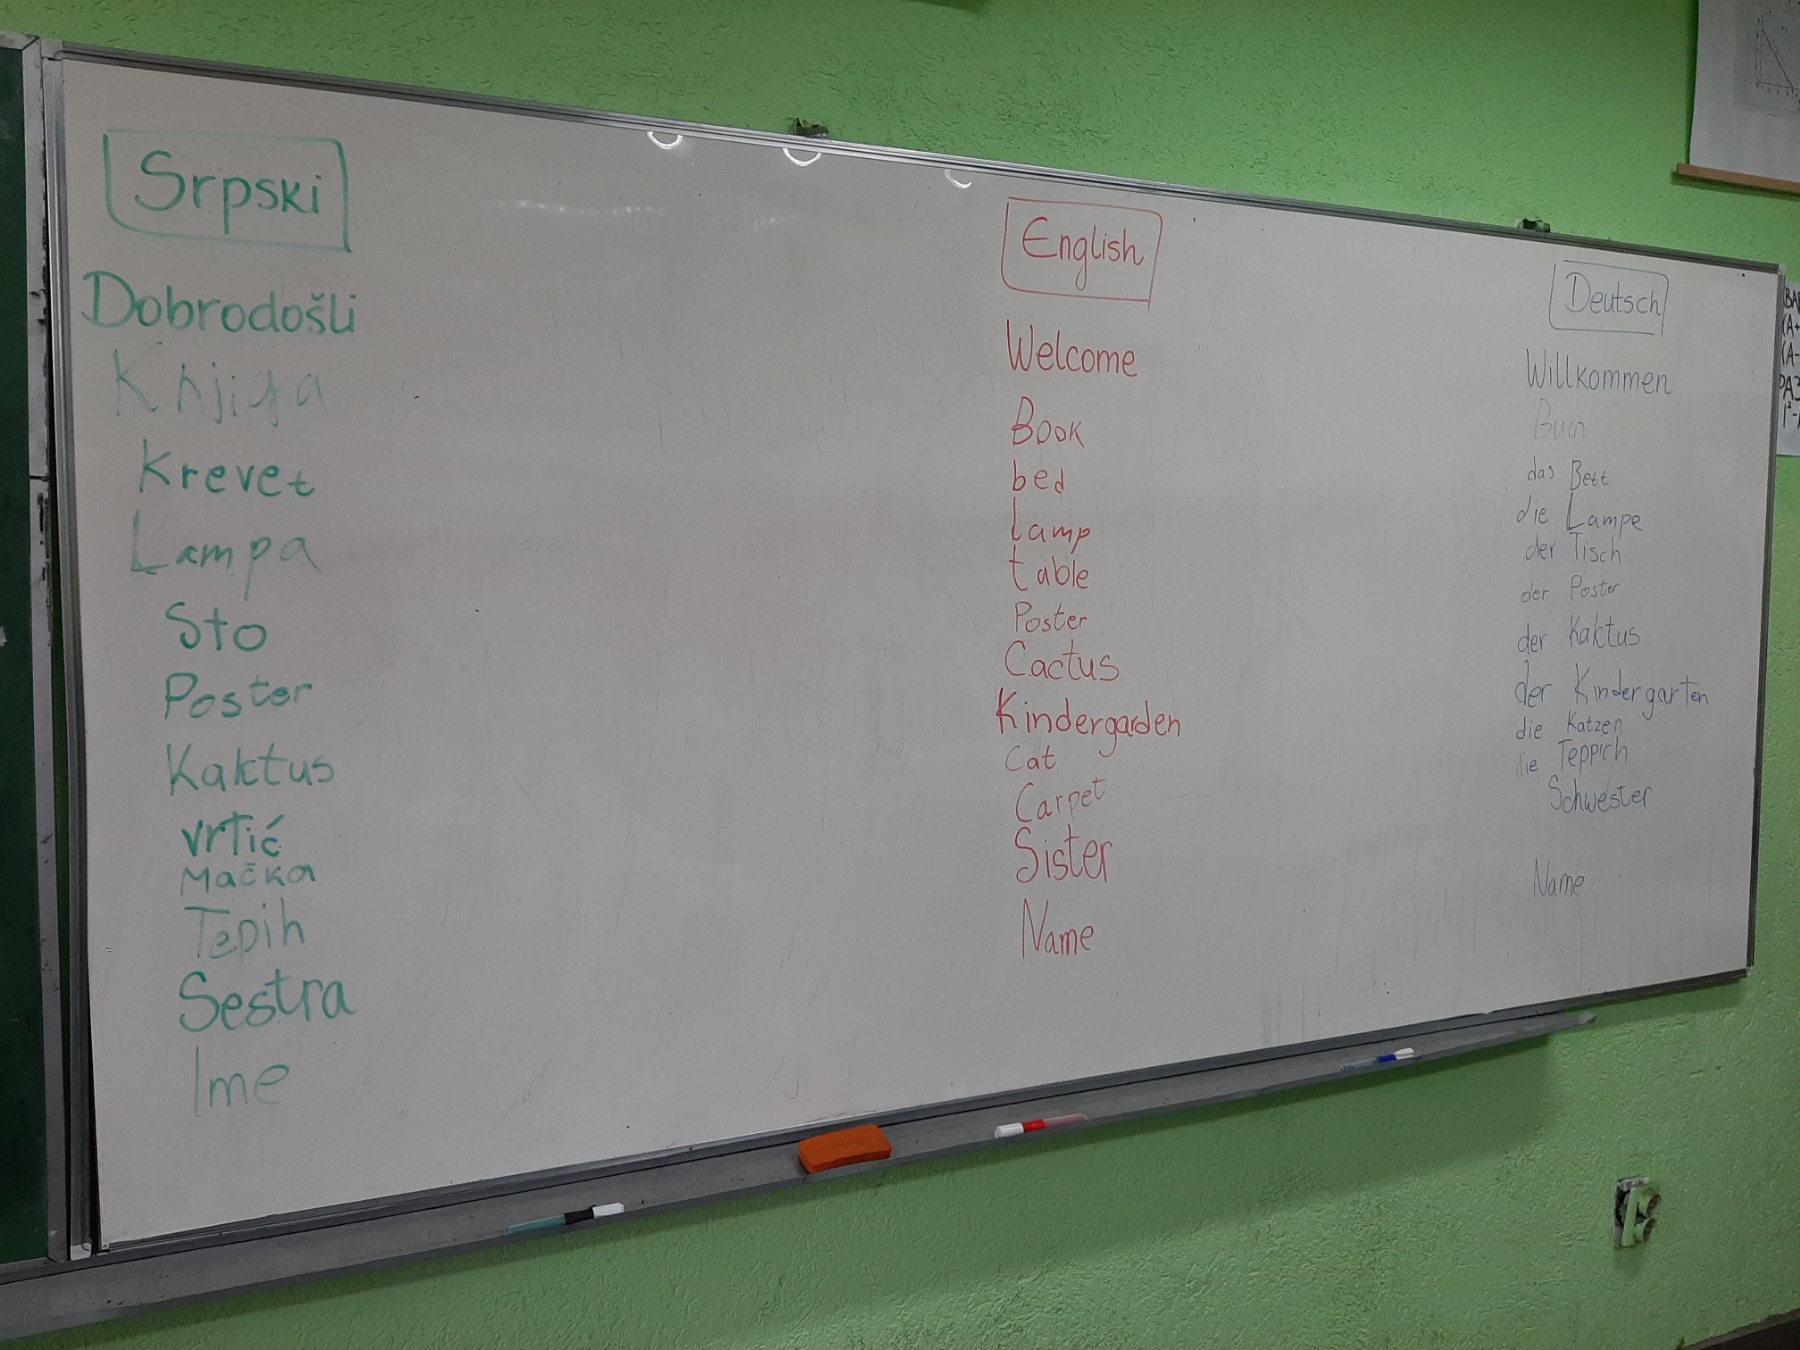 Srpski
Dobrodošli
Knjiga
Krevet
Lampa
Sto
Poster
Kaktus
vrtić
Mačka
Tepih
Sestra
Ime
English
Welcome
Book
bed
Lamp
table
Poster
Cactus
Kindergarden
Cat
Carpet
Sister
Name
Deutsch
Willkommen
Buch
das Bett
die Lampe
der Tisch
der Poster
der Kaktus
der Kindergarten
die Katzen
die Teppich
Schwester
Name